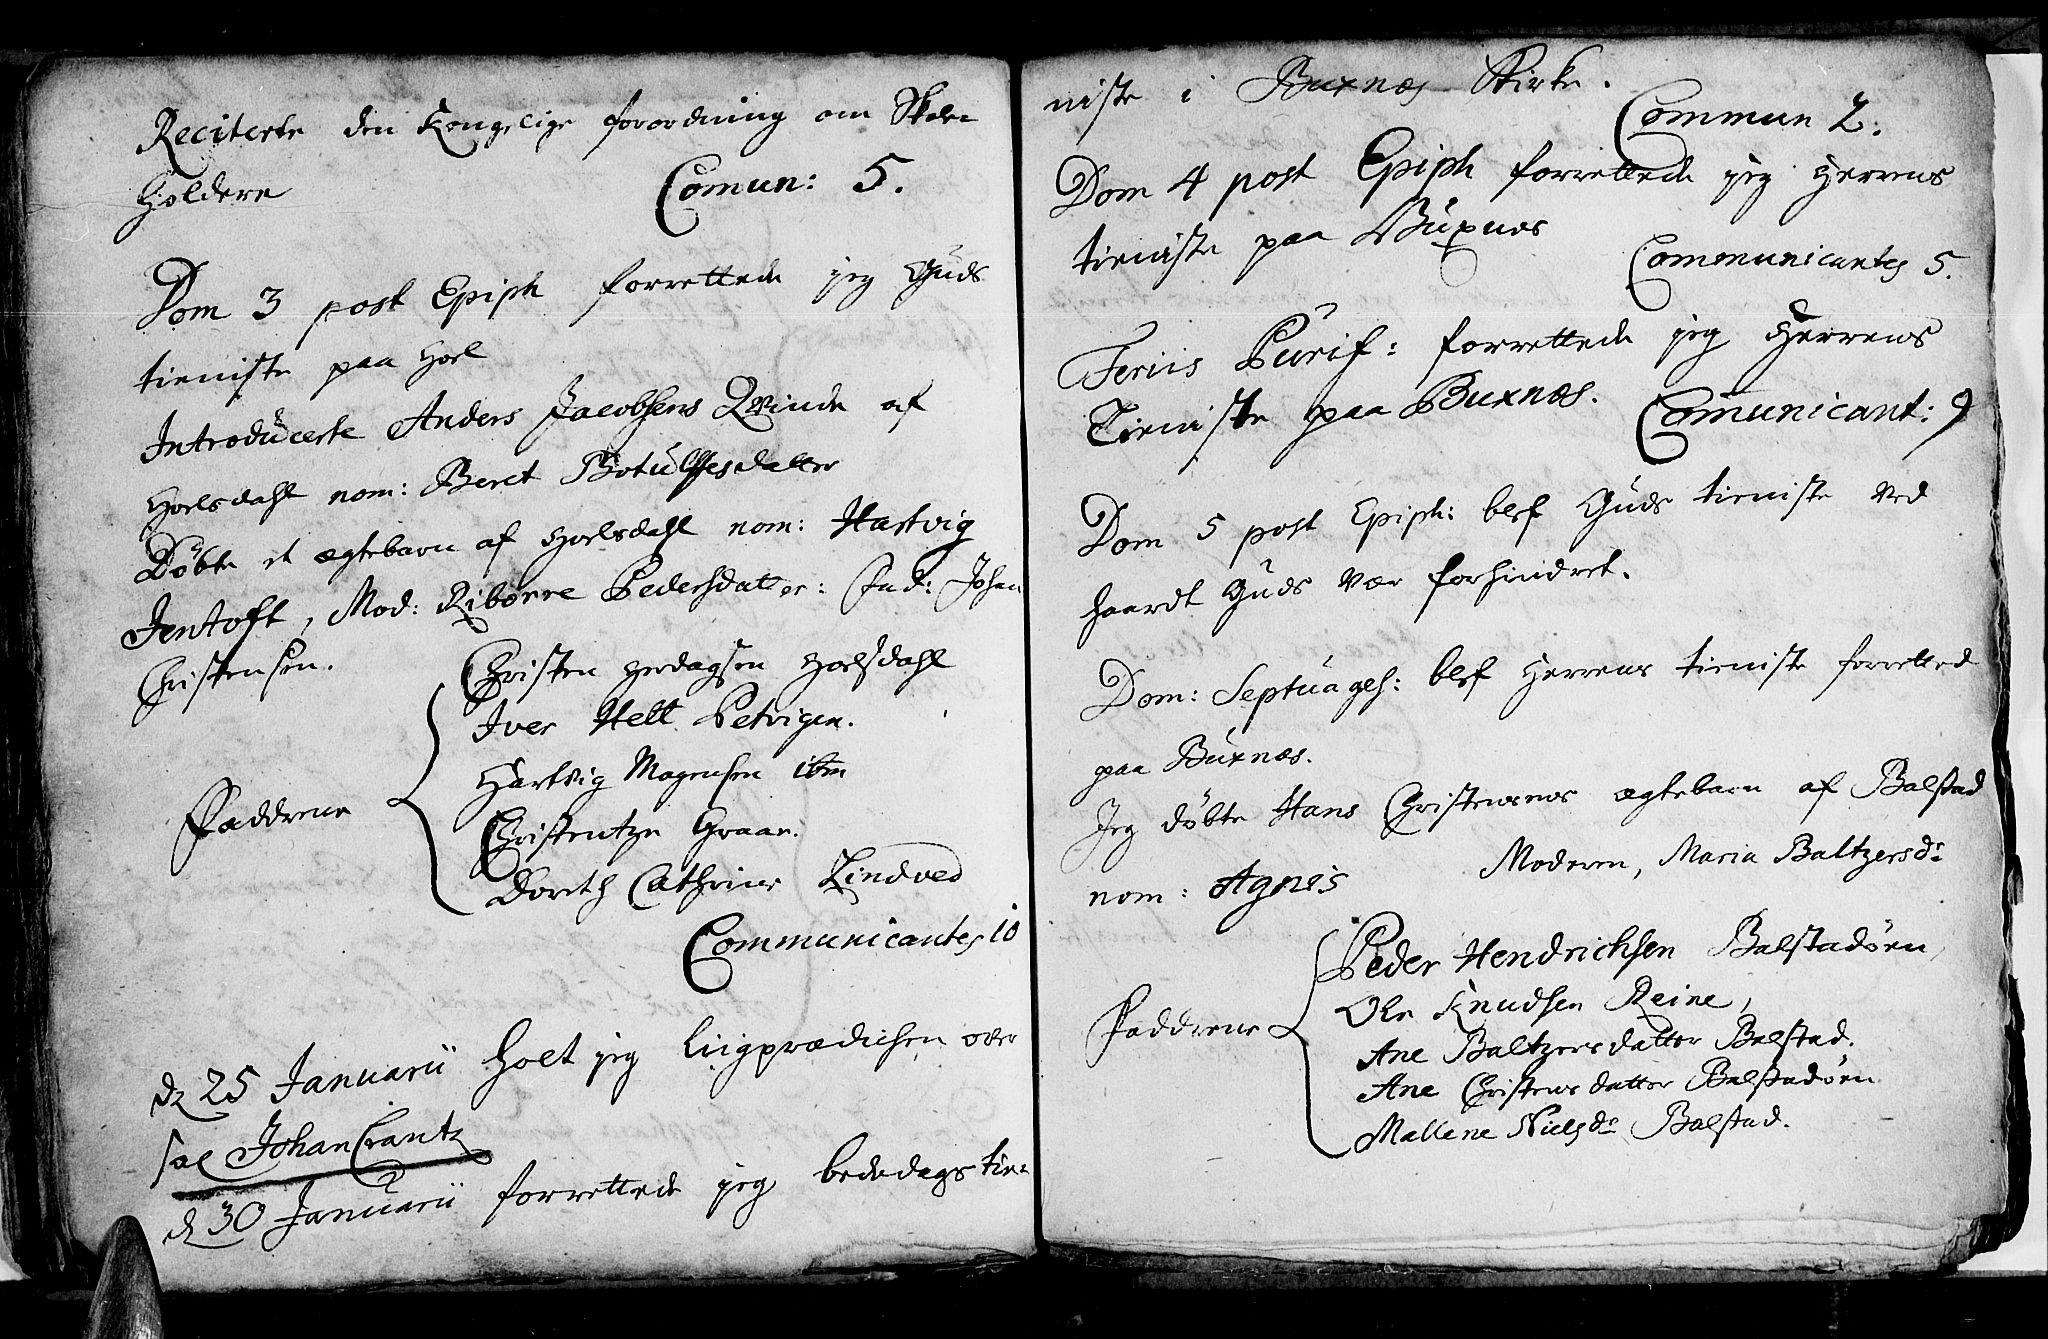 Reciterte den Kongelige forordning om Skole
holdere Comun: 5.
Dom 3 post Epiph forrettede jeg Guds
tieniste paa Hoel
Introducerte Anders Jacobsens Qvinde af
Hoelsdahl nom: Beret Botulfesdatter
Döbte et ægtebarn af Hoelsdahl nom: Hartvig
Jentoft, Mod: Riborre Pedersdatter: Fad: Johan
Christensen.
Christen Hoelsdahl
Iver Helt Petvigen.
Hartvig Mogensen ibm
Faddrene
Christentze Graae.
Doreth Cathrine Lindved
Communicantes 10
d 25 Januarii holt jeg liigprædichen over
sal Johan Crantz
d 30 Januarii forrettede jeg bededags tie=
niste i Buxnæs Kirke.
Commun 2.
Dom 4 post Epiph forrettede jeg Herrens
tieniste paa Buxnæs
Communicantes 5.
Feriis Purif: forrettede jeg Herrens
Tieniste paa Buxnæs. Comunicant: 9
Dom 5 post Epiph: blef Guds tieniste ved
haardt Guds Vær forhindret.
Dom: Septuages: blef Herrens tieniste forretted
paa Buxnæs.
Jeg döbte Hans Christensens ægtebarn af Balstad
nom: Agnis Moderen, Maria Baltzersd:
Peder Hendrichsen Balstadöen,
Ole Knudsen Reine,
Faddrene
Ane Baltzersdatter Balstad.
Ane Christensdatter Balstadöen
Mallene Nielsd: Balstad.